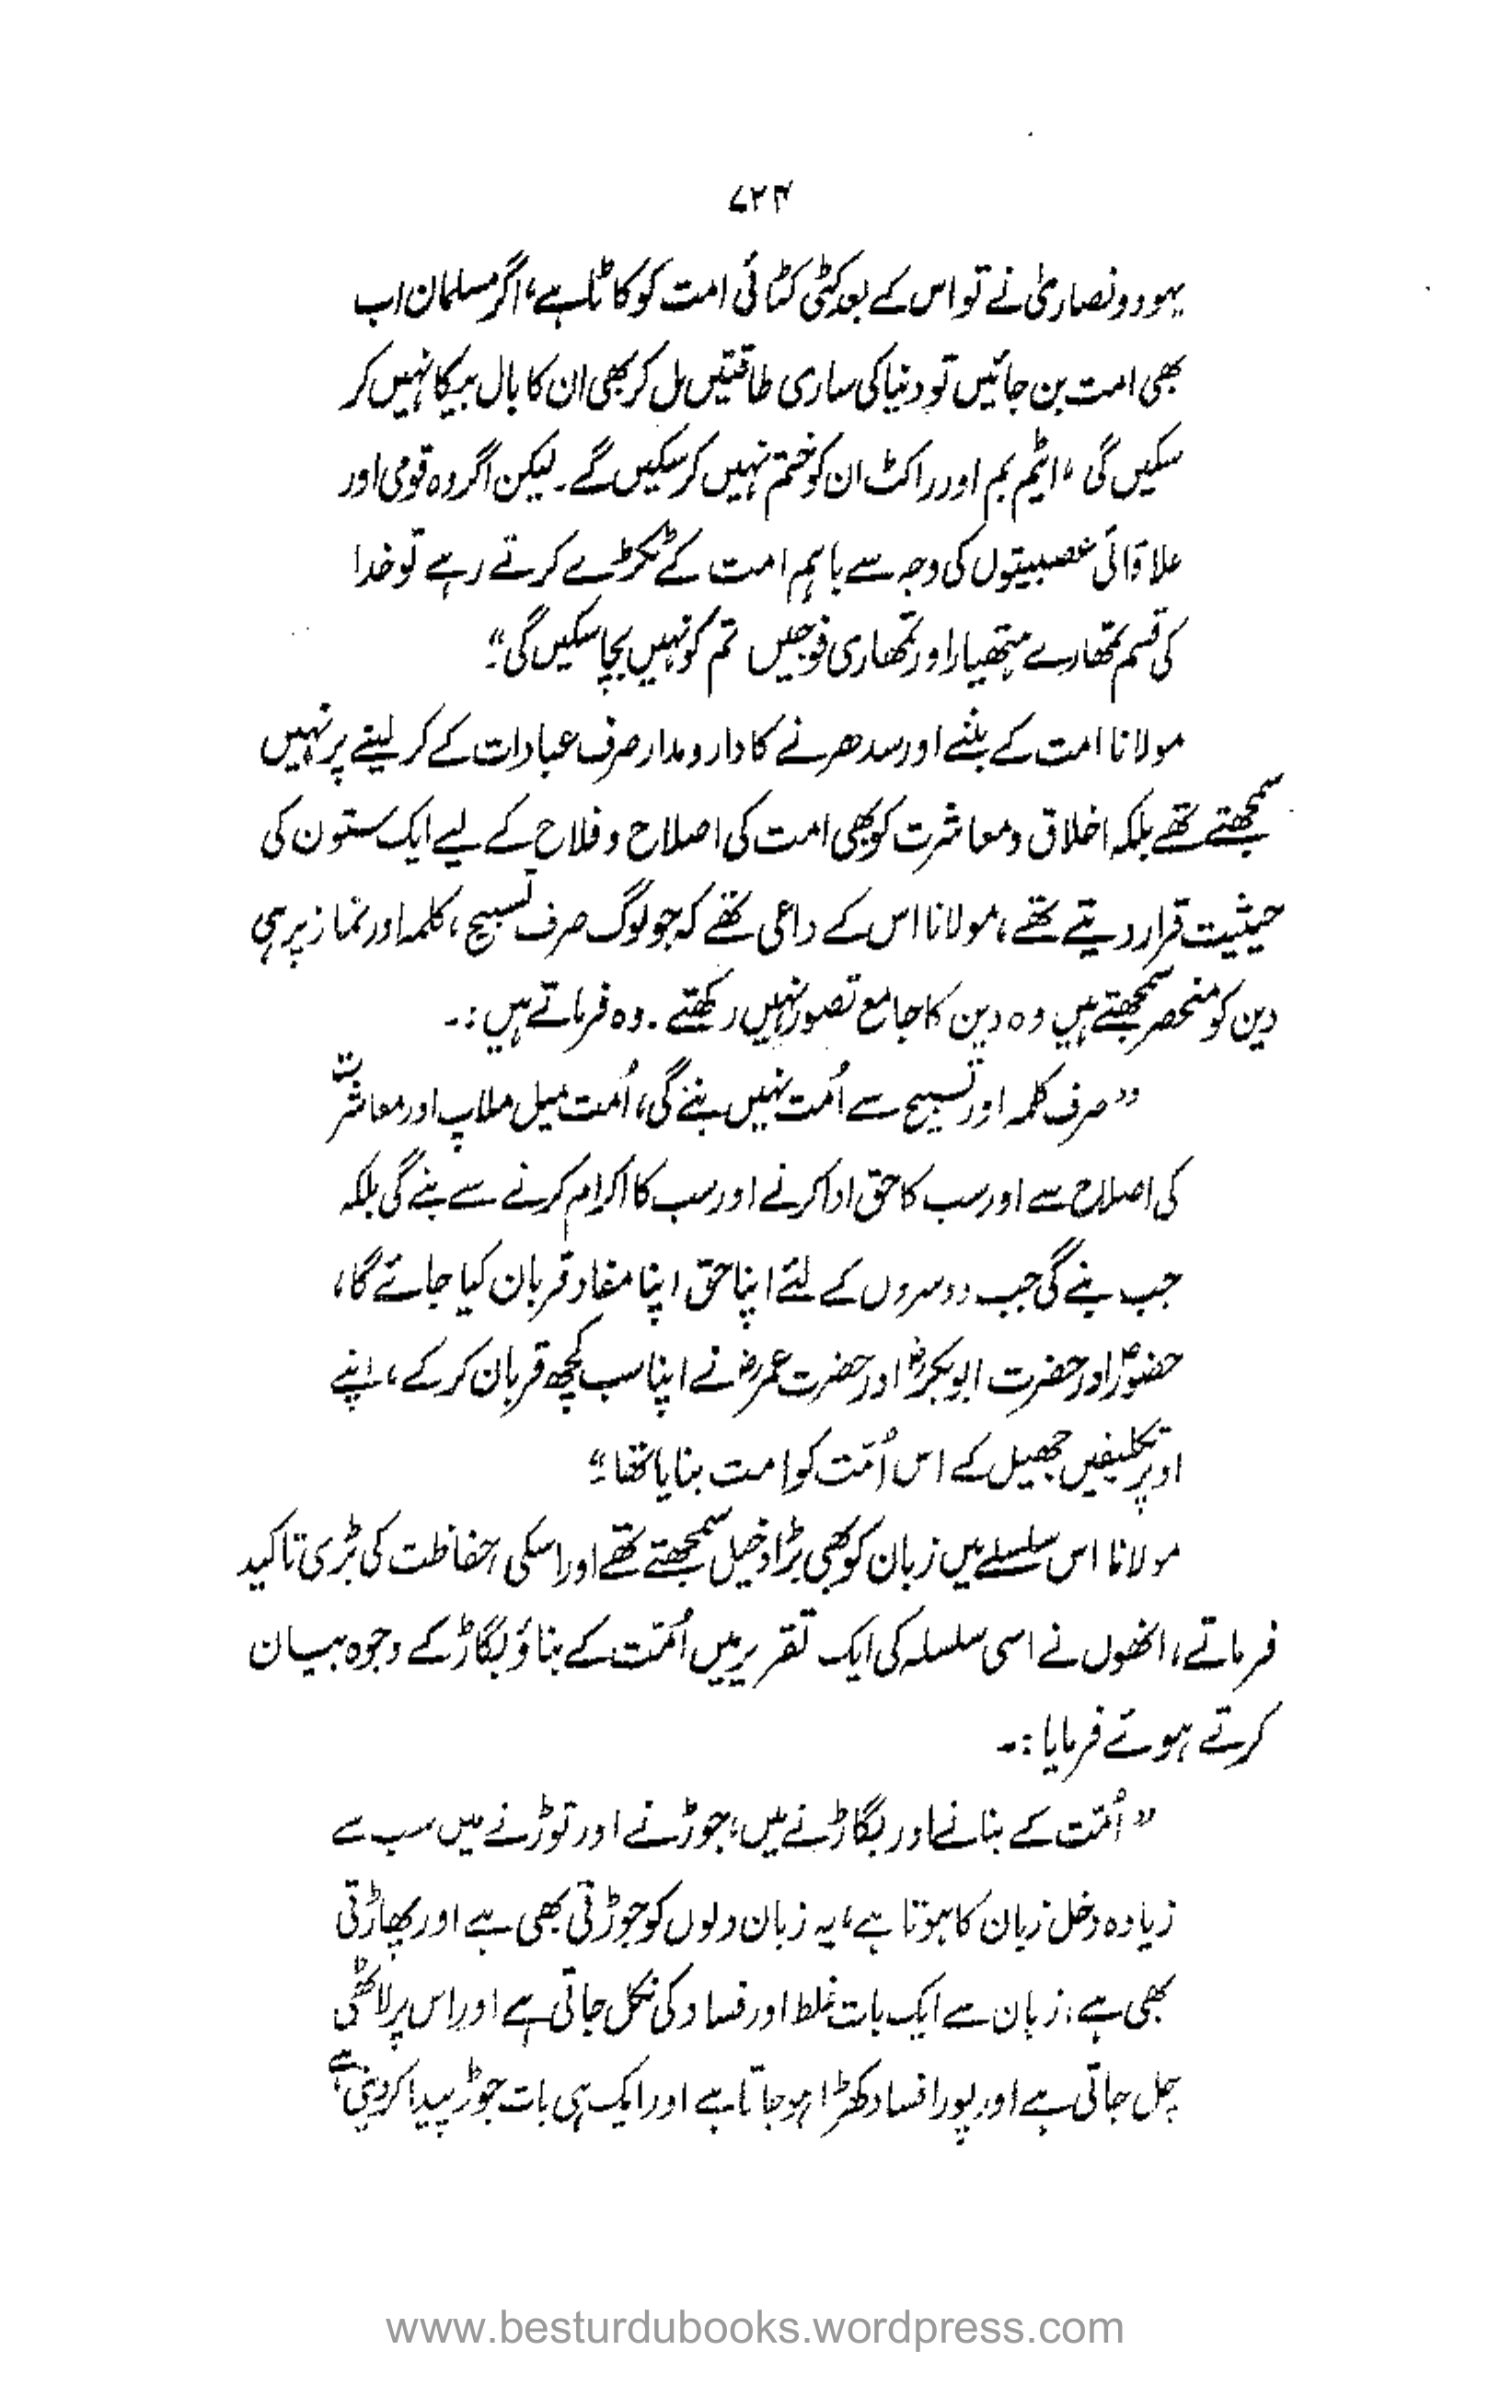 ۷۲۳
یہود و نصاریٰ نے تو اس کے بعد کٹی کٹائی امت کو کاٹا ہے، اگر مسلمان اب
بھی امت بن جائیں تو دنیا کی ساری طاقتیں مل کر بھی ان کا بال بیکا نہیں کر
سکیں گی، ایٹم بم اور راکٹ ان کو ختم نہیں کر سکیں گے۔ لیکن اگر وہ قومی اور
علاقائی عصبیتوں کی وجہ سے باہم امت کے ٹکڑے کرتے رہے تو خدا
کی قسم تمھارے ہتھیار اور تمھاری فوجیں تم کو نہیں بچا سکیں گی"۔
مولانا امت کے بننے اور سدھرنے کا دارومدار صرف عبادات کے کر لینے پر نہیں
سمجھتے تھے بلکہ اخلاق و معاشرت کو بھی امت کی اصلاح و فلاح کے لیے ایک ستون کی
حیثیت قرار دیتے تھے، مولانا اس کے داعی تھے کہ جو لوگ صرف تسبیح، کلمہ اور نماز پر ہی
دین کو منحصر سمجھتے ہیں وہ دین کا جامع تصور نہیں رکھتے۔ وہ فرماتے ہیں:۔
"صرف کلمہ اور تسبیح سے اُمت نہیں بنے گی، اُمت میل ملاپ اور معاشرت
کی اصلاح سے اور سب کا حق ادا کرنے اور سب کا اکرام کرنے سے بنے گی بلکہ
جب بنے گی جب دوسروں کے لئے اپنا حق اپنا مفاد قربان کیا جائے گا،
حضورؐ اور حضرت ابوبکرؓ اور حضرت عمرؓ نے اپنا سب کچھ قربان کر کے، اپنے
اوپر تکلیفیں جھیل کے اس اُمّت کو امت بنایا تھا"۔
مولانا اس سلسلے میں زبان کو بھی بڑا دخیل سمجھتے تھے اور اسکی حفاظت کی بڑی تاکید
فرماتے، انھوں نے اسی سلسلہ کی ایک تقریر میں اُمّت کے بناؤ بگاڑ کے وجوہ بیان
کرتے ہوئے فرمایا:۔
"اُمّت کے بنانے اور بگاڑنے میں، جوڑنے اور توڑنے میں سب سے
زیادہ دخل زبان کا ہوتا ہے، یہ زبان دلوں کو جوڑتی بھی ہے اور پھاڑتی
بھی ہے، زبان سے ایک بات غلط اور فساد کی نکل جاتی ہے اور اس پر لاٹھی
چل جاتی ہے اور پورا فساد کھڑا ہو جاتا ہے اور ایک ہی بات جوڑ پیدا کر دیتی ہے
www.besturdubooks.wordpress.com